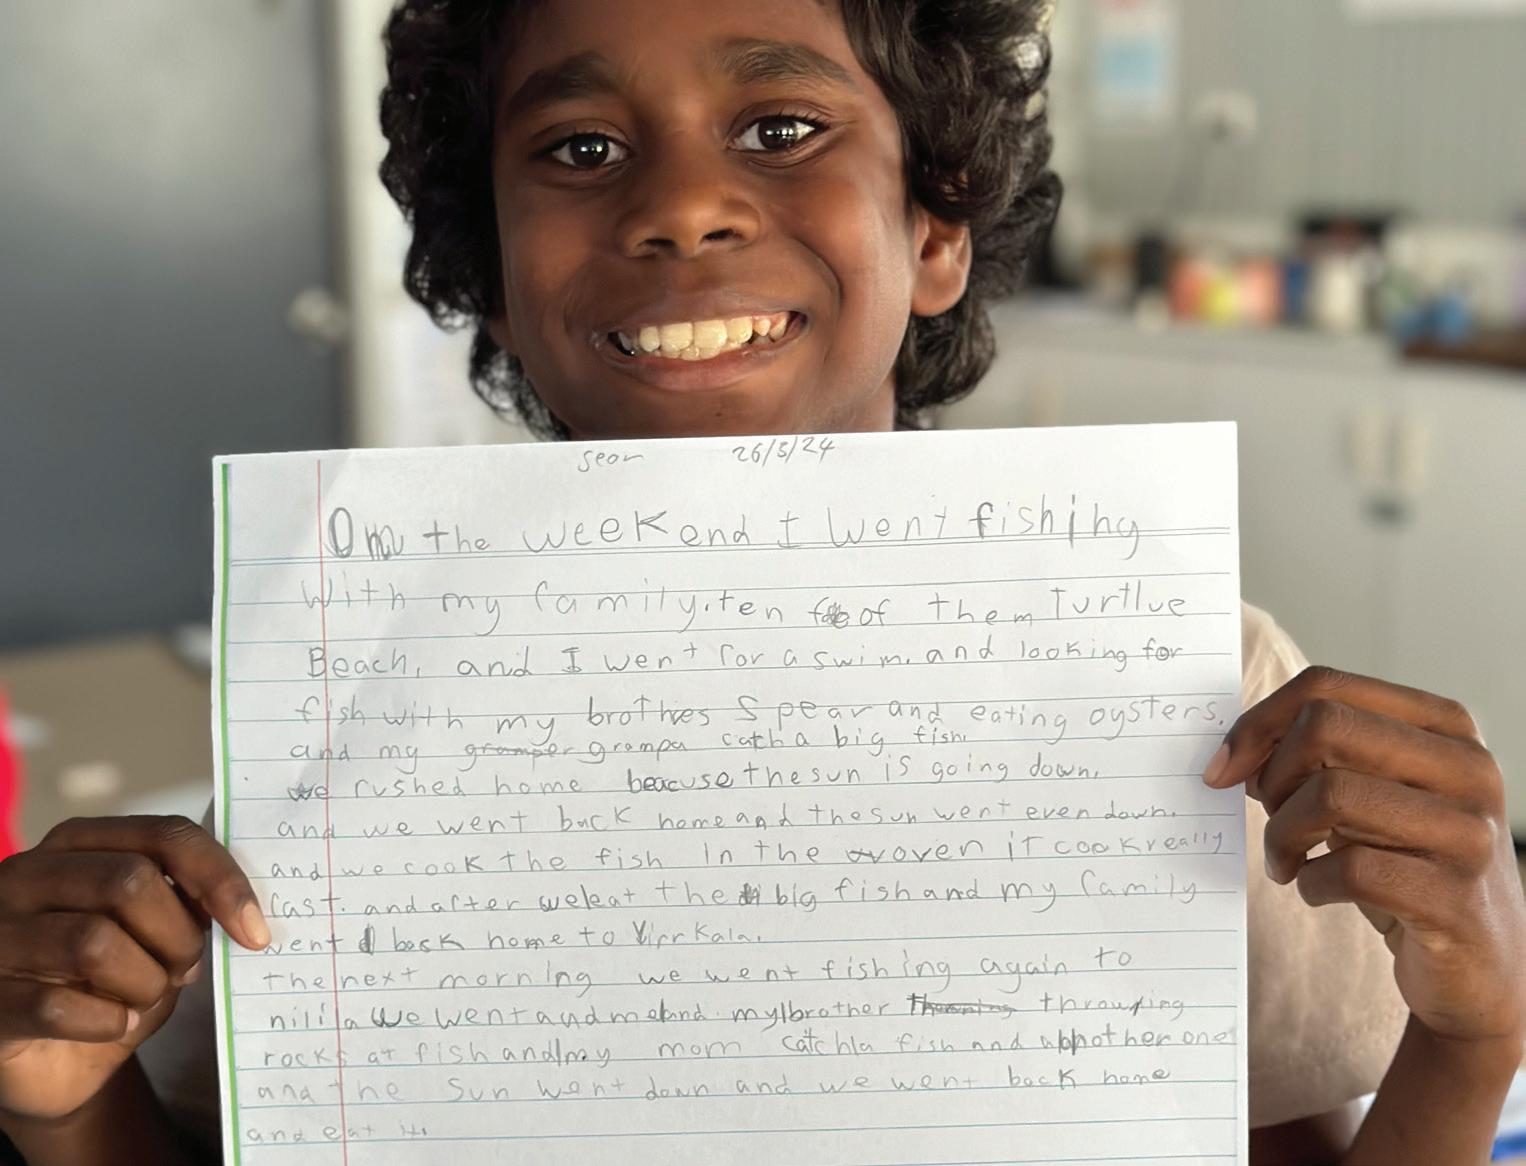 Sean 26/3/24
On the weekend I went fishing
With my family. ten of them Turtlue
Beach, and I went for a swim. and looking for
fish with my brothes Spear and eating oysters.
and my gramper grampa catch a big fish.
we rushed home beacuse the sun is going down.
and we went back home and the sun went even down.
and we cook the fish In the oven it cook really
fast. and after we eat the big fish and my family
went back home to Yirrkala.
the next morning we went fishing again to
we went and me and my brother throwing
rocks at fish and my mom catch a fish and another one
and the Sun went down and we went back home
and eat it.